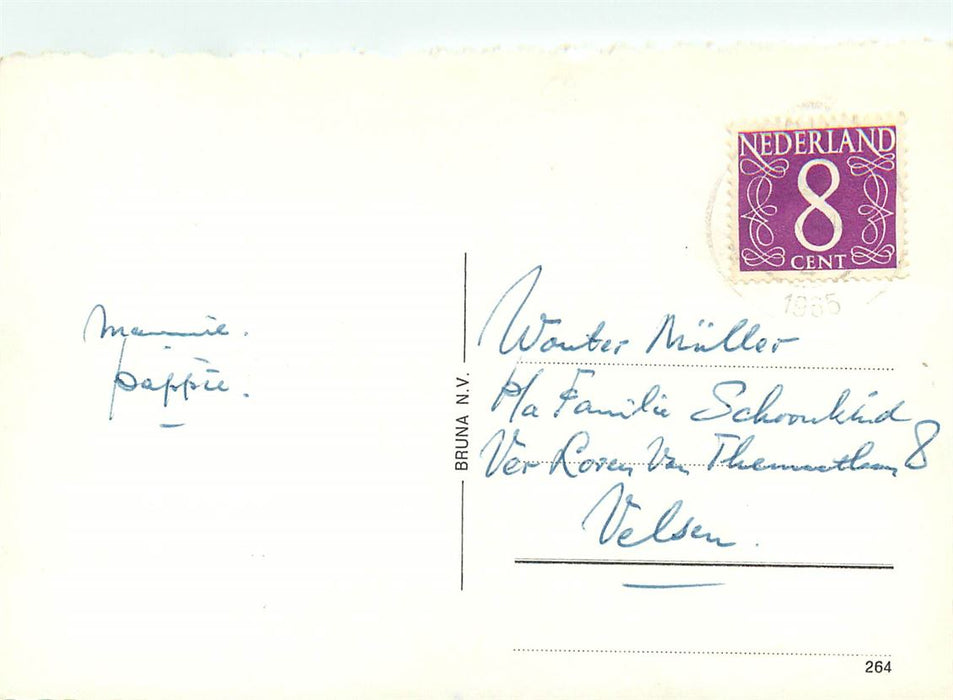 NEDERLAND
8
CENT
1965
mammie.
pappie.
BRUNA N.V.
Wouter Müller
P/a Familie Schoonkind
Ver Loren Van Themaatlaan 8
Velsen.
264